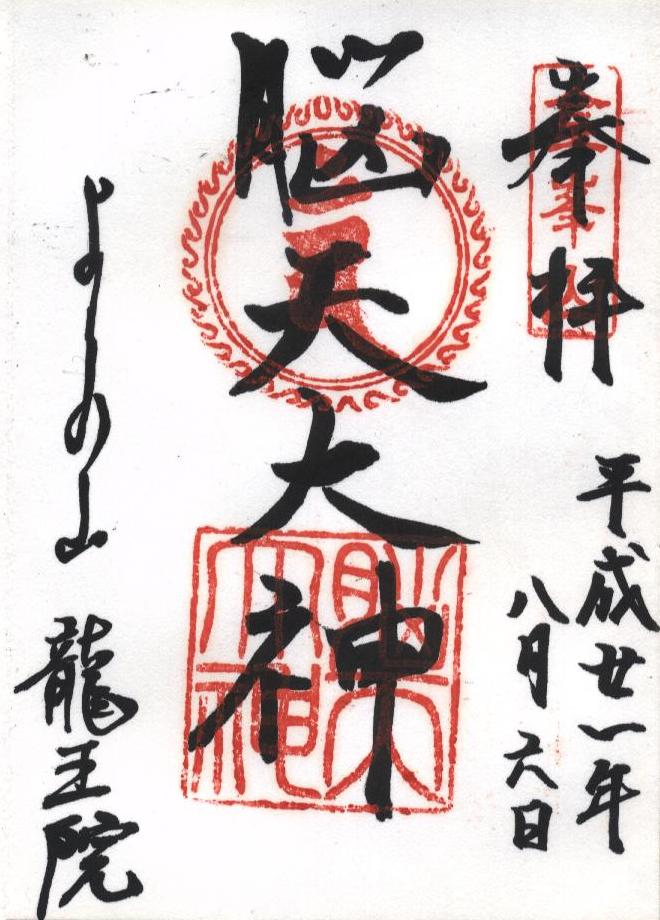 奉拝
平成廿一年
八月六日
脳天大神
脳天大神
よしの山 龍王院